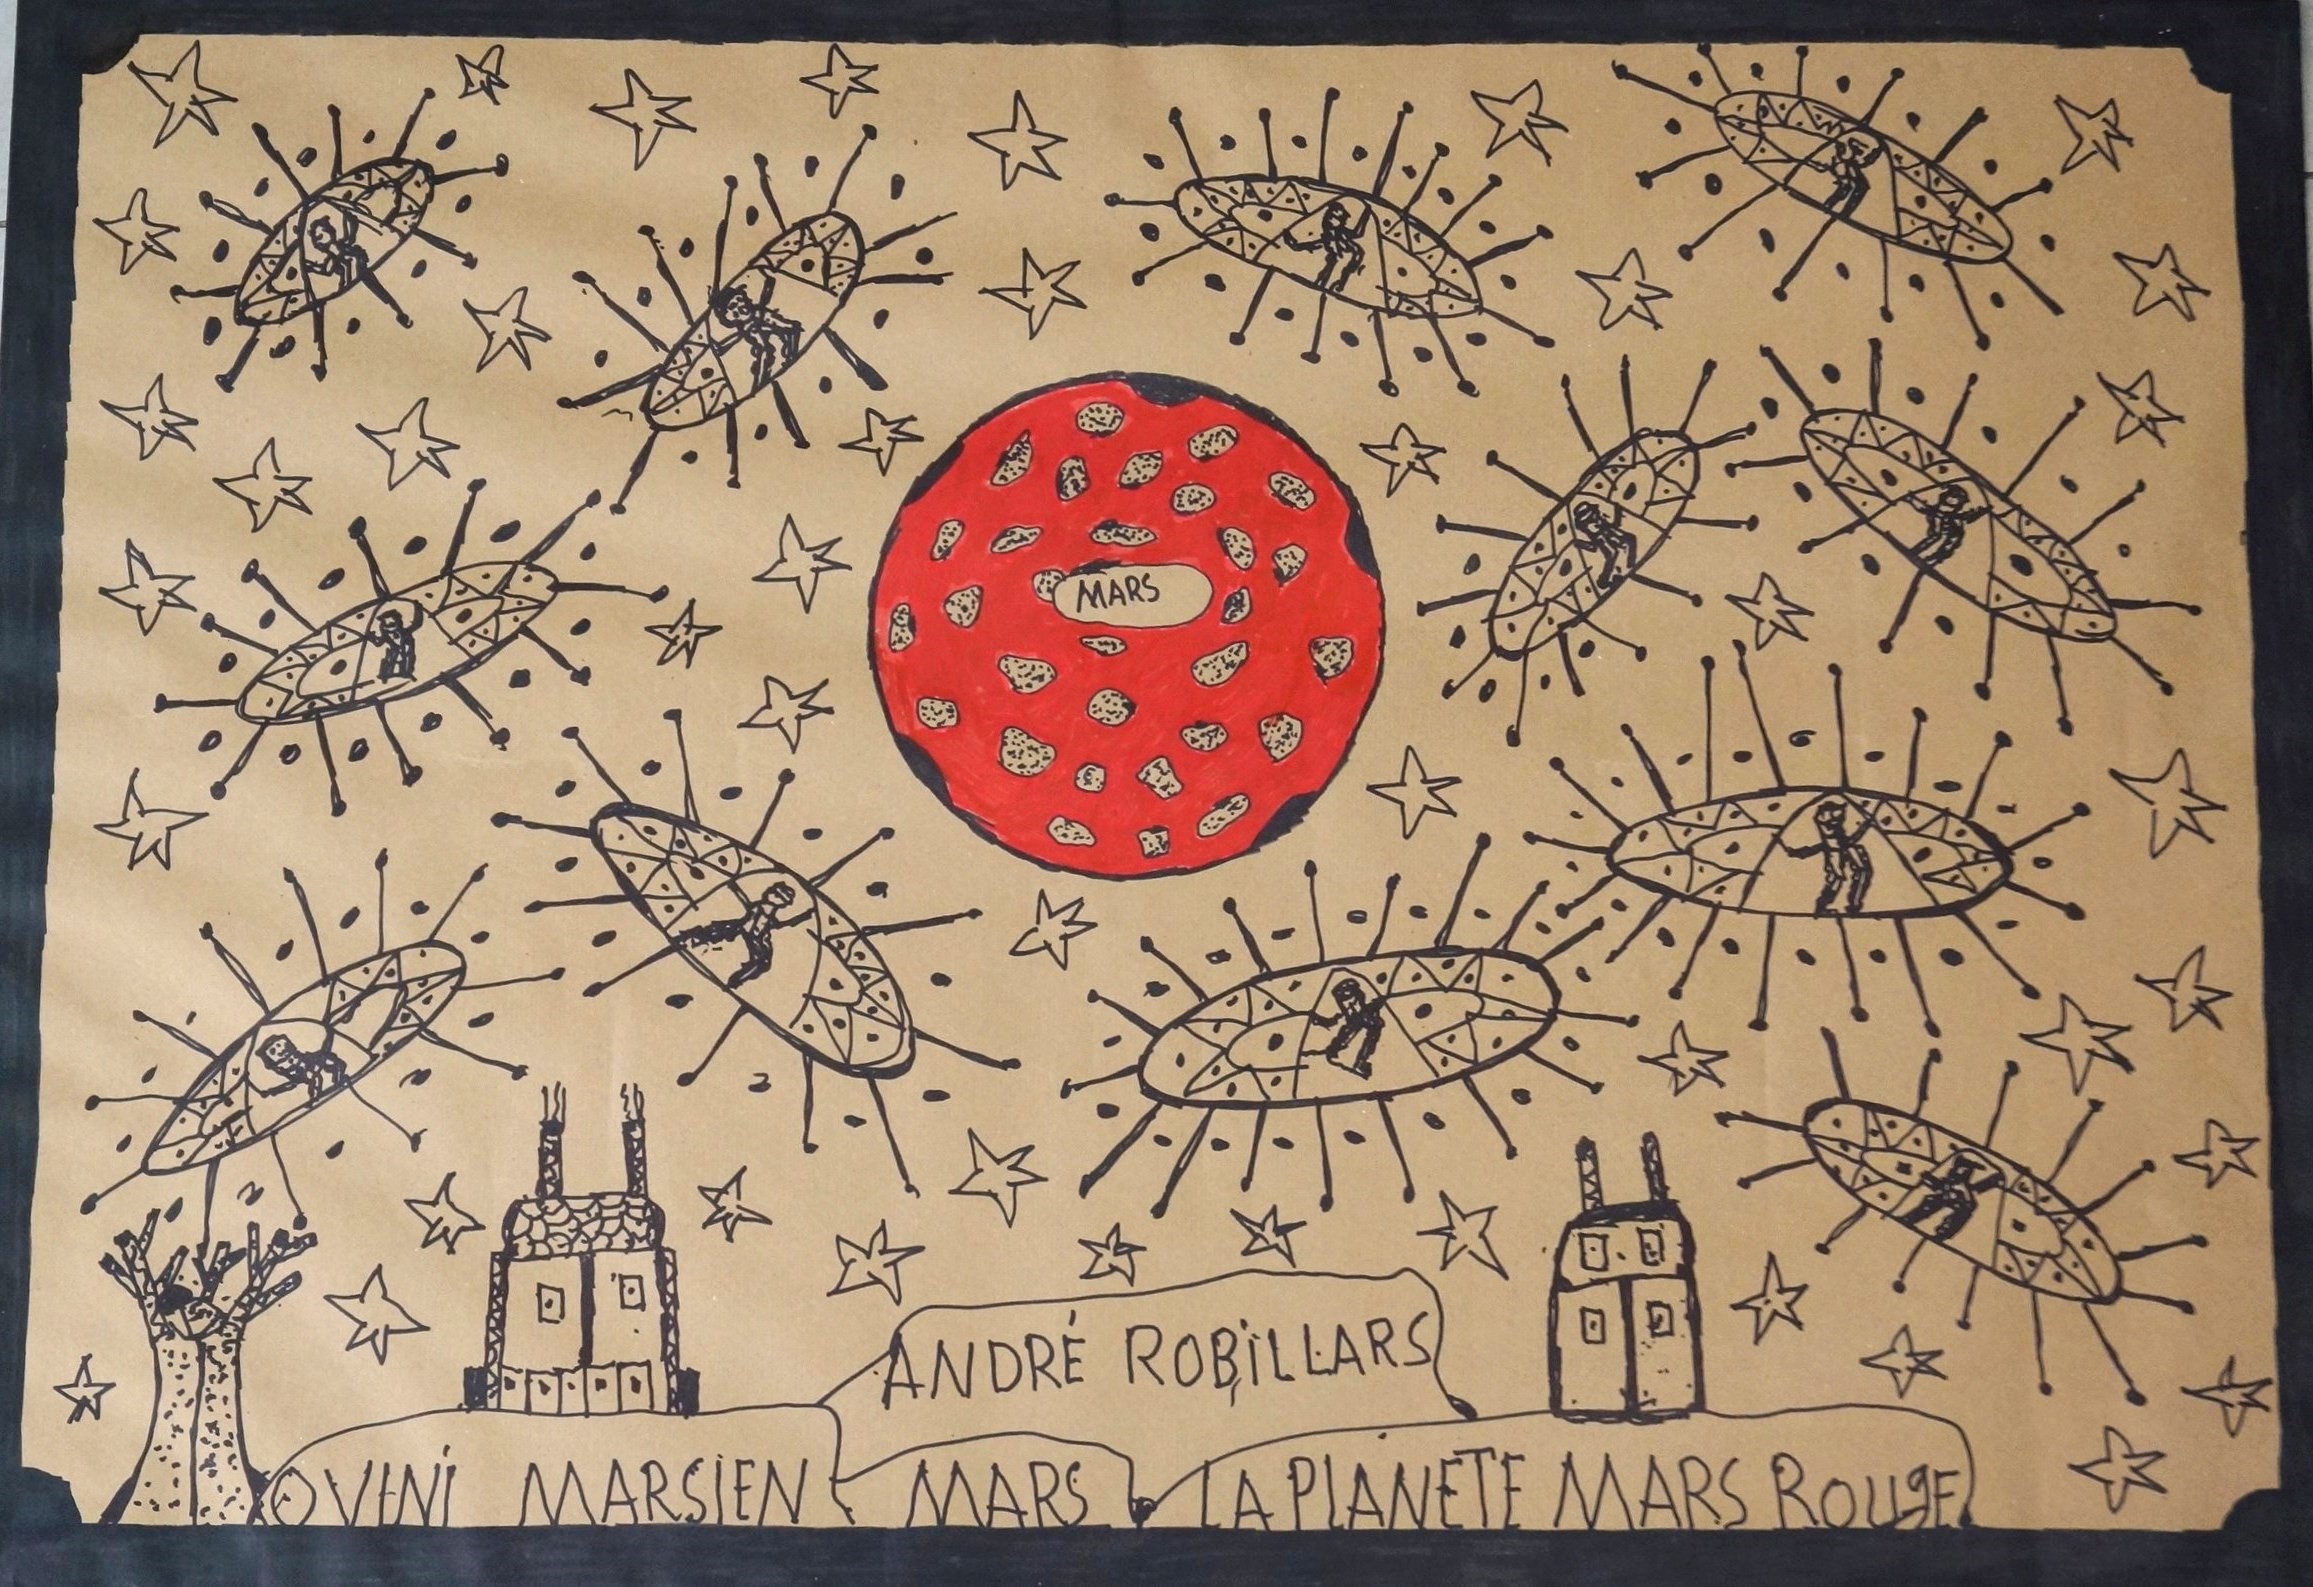 MARS
ANDRÉ ROBiLLARS
OVINI MARSIEN MARS LA PLANETE MARS ROUgE